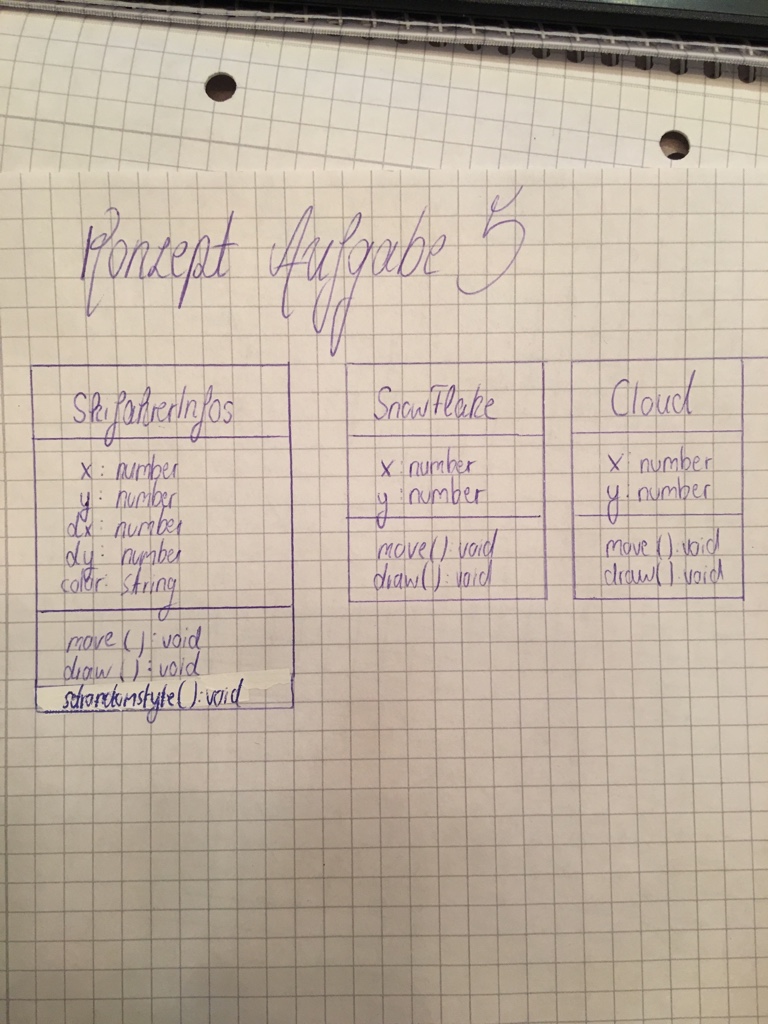 Konzept Aufgabe 5
SkifahrerInfos
x: number
y: number
dx: number
dy: number
color: string
move(): void
draw(): void
setrandomstyle(): void
SnowFlake
x: number
y: number
move(): void
draw(): void
Cloud
x: number
y: number
move(): void
draw(): void